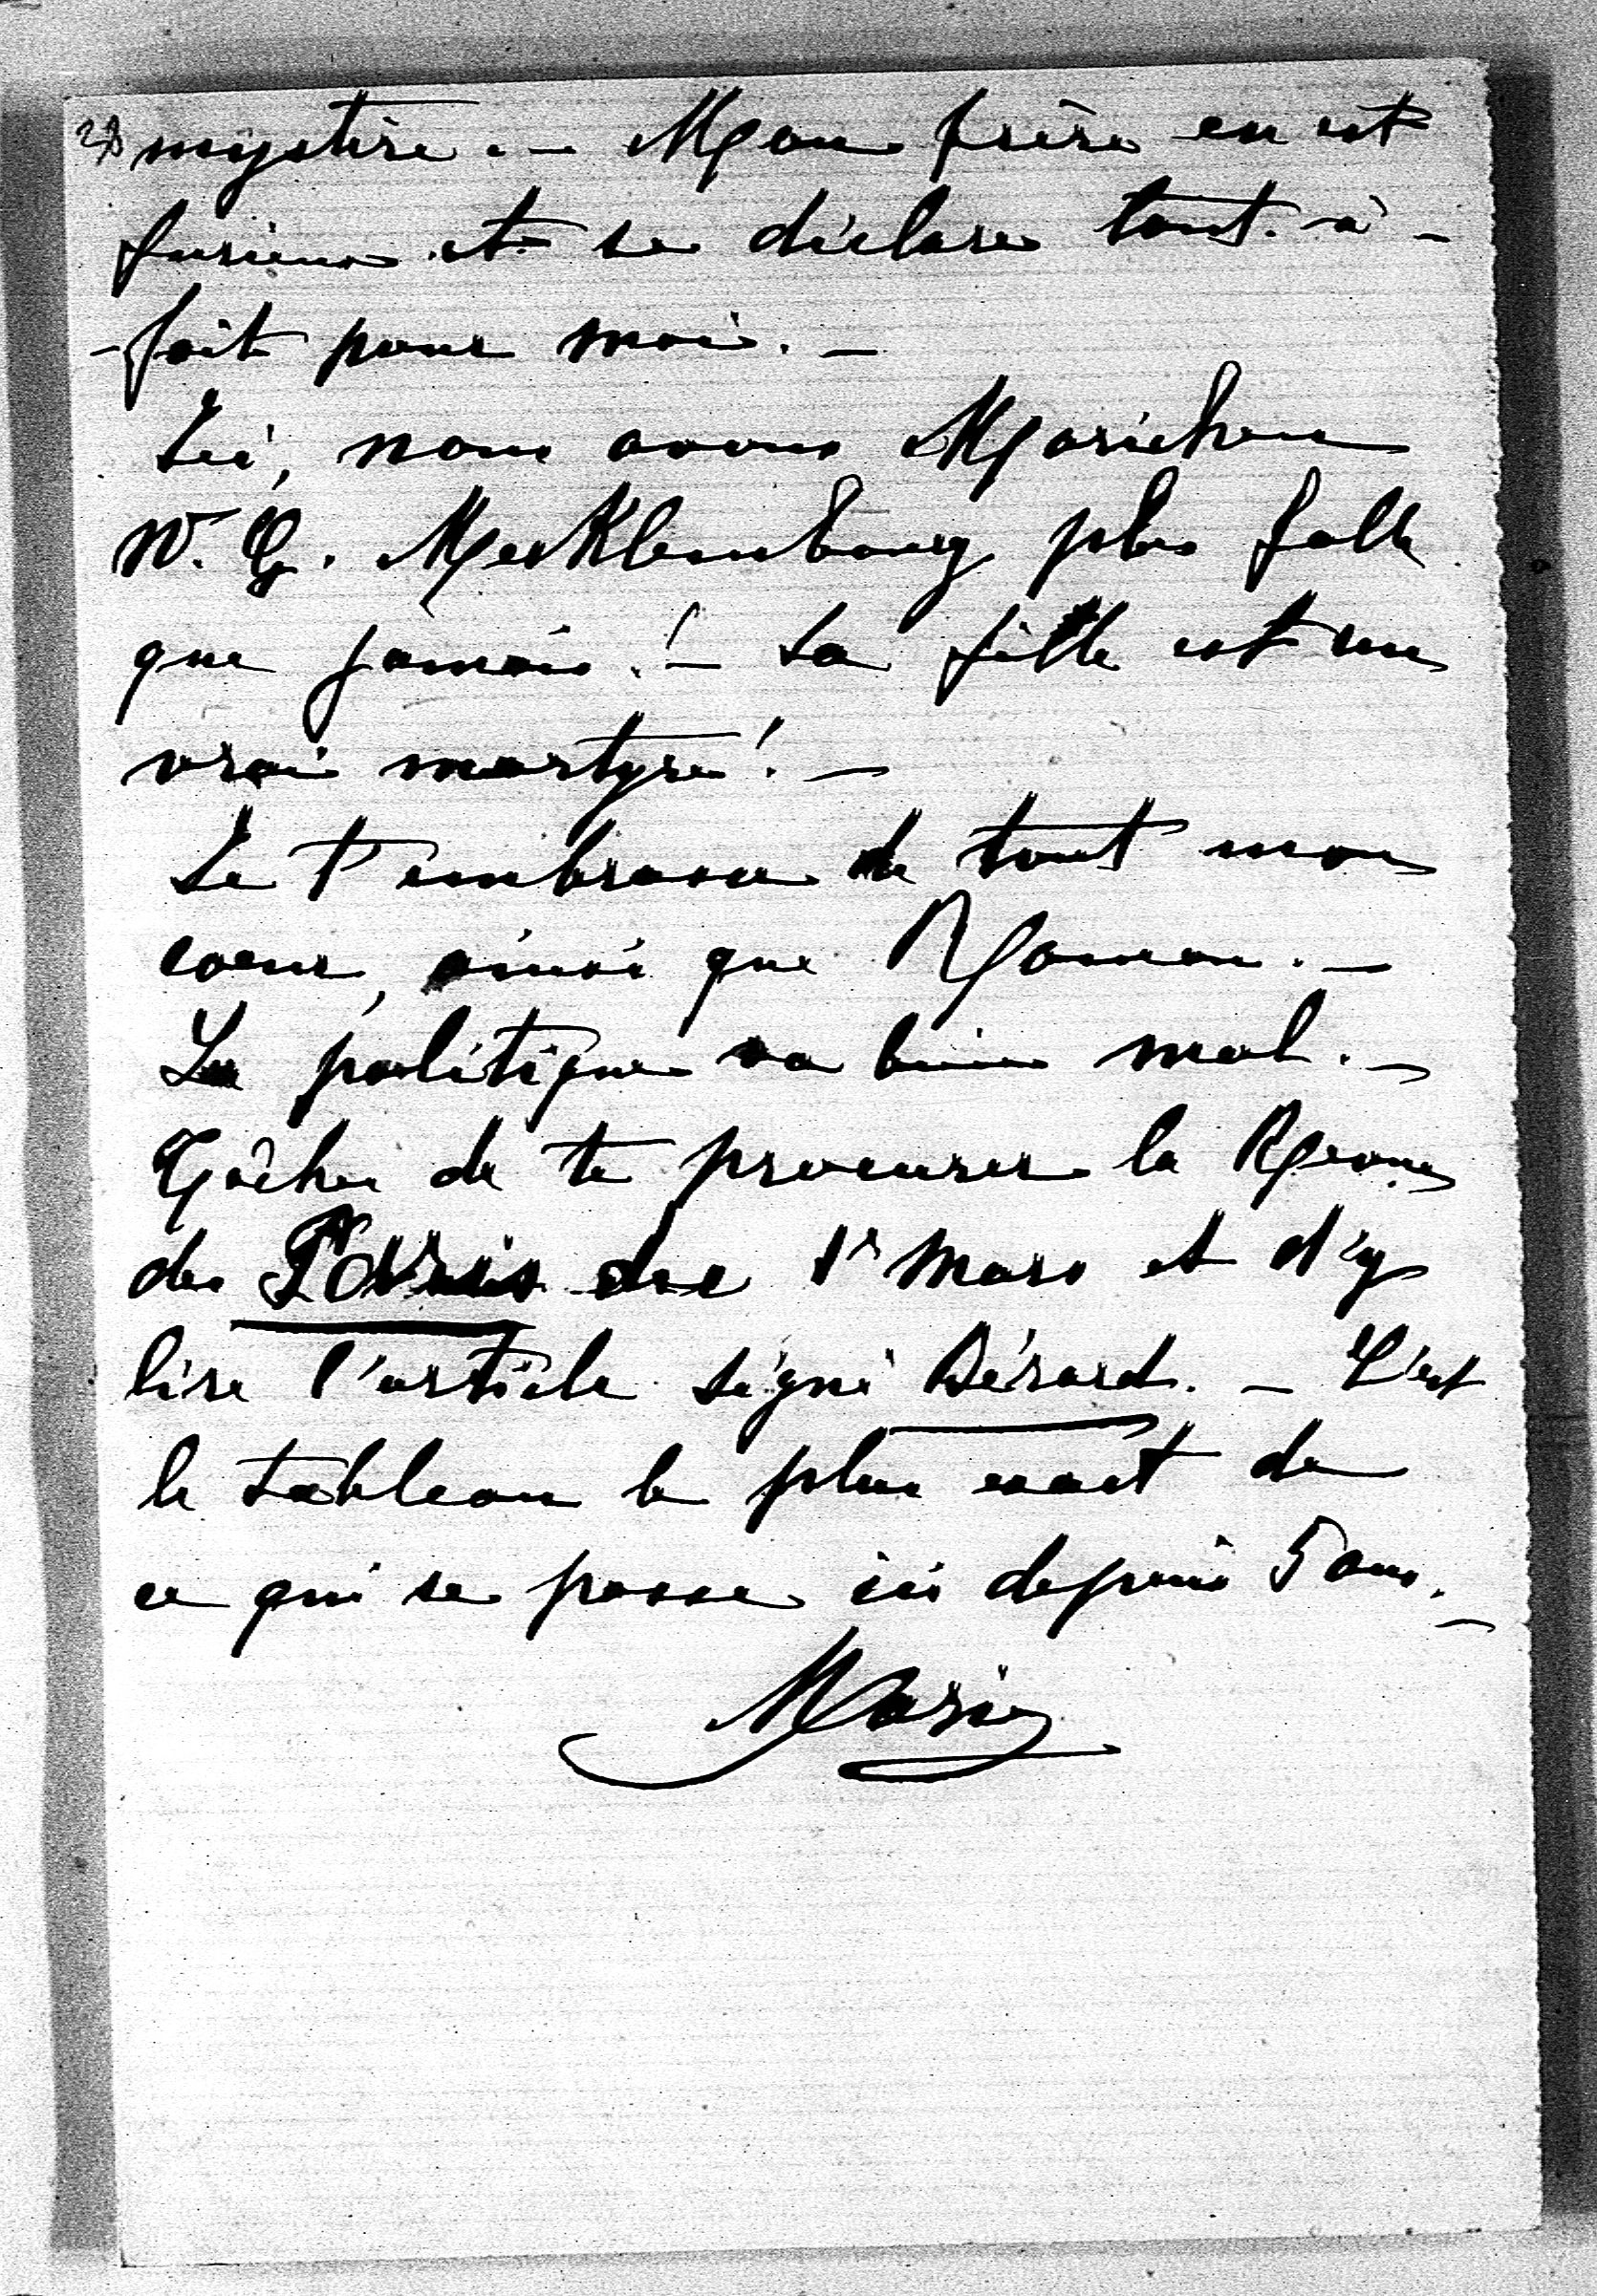 mystère. — Mon frère en est
furieux et se déclare tout-à-
-fait pour moi. —
Ici, nous avons Marichen
W. G. Mecklembourg plus folle
que jamais! — Sa fille est une
vraie martyre! —
Je t'embrasse de tout mon
coeur, ainsi que Maman. —
La politique va bien mal. —
Tâchez de te procurer la Revue
de Paris du 1r Mars et d'y
lire l'article signé Bérard. — C'est
le tableau le plus exact de
ce qui se passe ici depuis 5 ans. —
Marie